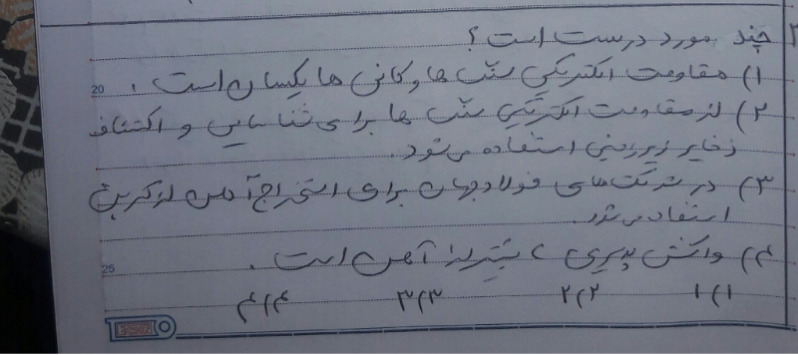 چند مورد درست است؟
۱) مقاومت الکتریکی سنگ ها و کانی ها یکسان است.
20
۲) از مقاومت الکتریکی سنگ ها برای شناسایی و اکتشاف
ذخایر زیرزمینی استفاده می شود.
۳) در شرکت های فولاد جهان برای استخراج آهن از کربن
استفاده می شود.
۴) واکنش پذیری بیشتر از آهن است.
25
۱) ۱ ۲) ۲ ۳) ۳ ۴) ۴